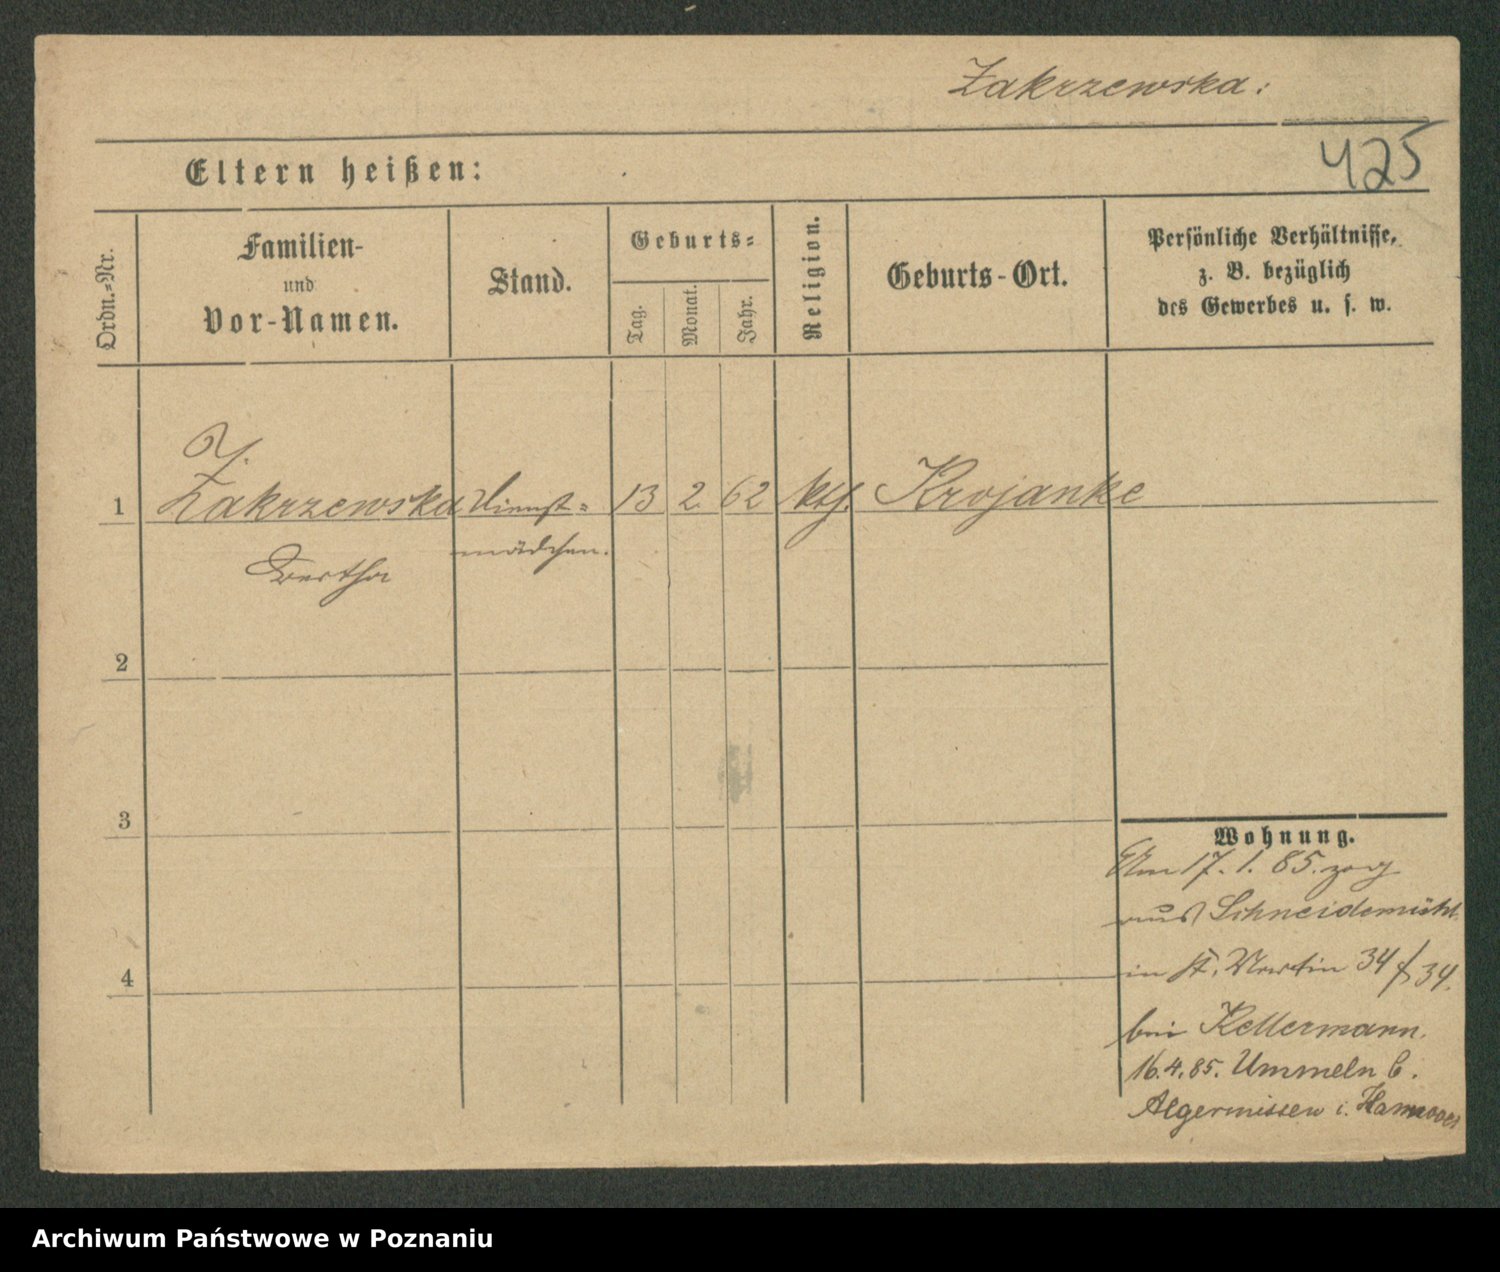 Zakrzewska:
425
Eltern heißen:
Ordn.=Nr.
Familien-
und
Vor-Namen.
Stand.
Geburts=
Tag.
Monat.
Jahr.
Religion.
Geburts-Ort.
Persönliche Verhältnisse,
z. B. bezüglich
des Gewerbes u. s. w.
1 Zakrzewska Dienst= 13 2. 62 Krojanke
mädchen.
Bertha
2
3
4
Wohnung.
Am 17. 1. 85. zog
aus Schneidemühl
in St. Martin 34 34.
bei Kellermann.
16.4.85. Ummeln b.
Algermissen i. Hannover
Archiwum Państwowe w Poznaniu